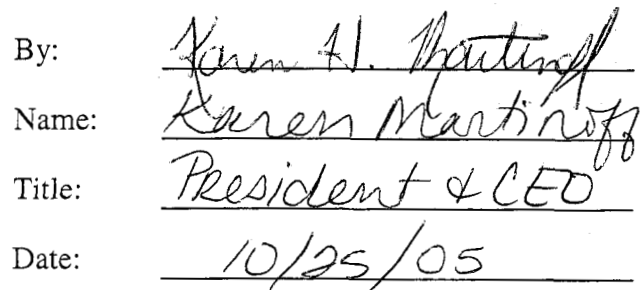 By: Karen H. Martinoff
Name: Karen Martinoff
Title: President & CEO
Date: 10/25/05